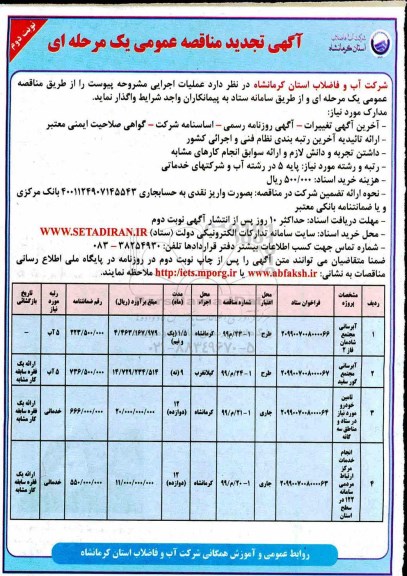 نوبت دوم
شرکت آب و فاضلاب
استان کرمانشاه
آگهی تجدید مناقصه عمومی یک مرحله ای
شرکت آب و فاضلاب استان کرمانشاه در نظر دارد عملیات اجرایی مشروحه پیوست را از طریق مناقصه
عمومی یک مرحله ای و از طریق سامانه ستاد به پیمانکاران واجد شرایط واگذار نماید.
مدارک مورد نیاز:
- آخرین آگهی تغییرات – آگهی روزنامه رسمی – اساسنامه شرکت – گواهی صلاحیت ایمنی معتبر
- ارائه تائیدیه آخرین رتبه بندی نظام فنی و اجرائی کشور
- داشتن تجربه و دانش لازم و ارائه سوابق انجام کارهای مشابه
- رتبه و رشته مورد نیاز: پایه ۵ در رشته آب و شرکتهای خدماتی
- هزینه خرید اسناد: ۵۰۰/۰۰۰ ریال
- نحوه ارائه تضمین شرکت در مناقصه: بصورت واریز نقدی به حسابجاری ۴۰۰۱۱۲۴۹۰۷۱۴۵۵۴۳ بانک مرکزی
و یا ضمانتنامه بانکی معتبر
- مهلت دریافت اسناد: حداکثر ۱۰ روز پس از انتشار آگهی نوبت دوم
- محل خرید اسناد: سایت سامانه تدارکات الکترونیکی دولت (ستاد) WWW.SETADIRAN.IR
- شماره تماس جهت کسب اطلاعات بیشتر دفتر قراردادها تلفن: ۳۸۲۵۴۹۳۰ – ۰۸۳
ضمنا متقاضیان می توانند متن آگهی را پس از چاپ نوبت دوم در روزنامه در پایگاه ملی اطلاع رسانی
مناقصات به نشانی: http:/iets.mporg.ir یا www.abfaksh.ir ملاحظه نمایند.
ردیف مشخصات پروژه فراخوان ستاد محل اعتبار شماره مناقصه محل اجراء مدت (ماه) مبلغ برآورد (ریال) رقم ضمانتنامه رتبه مورد نیاز تاریخ بازگشائی
۱ آبرسانی مجتمع شادمان فاز ۲ ۲۰۹۹۰۰۷۰۰۸۰۰۰۰۶۶ طرح ۱-۲۳/م/۹۹ کرمانشاه ۱/۵ (یک و نیم) ۴/۴۶۳/۱۶۷/۹۷۹ ۲۲۳/۵۰۰/۰۰۰ ۵ آب –
۲ آبرسانی مجتمع گور سفید ۲۰۹۹۰۰۷۰۰۸۰۰۰۰۶۷ طرح ۱-۲۴/م/۹۹ گیلانغرب ۹ (نه) ۱۴/۷۲۹/۲۳۴/۵۱۴ ۷۳۶/۵۰۰/۰۰۰ ۵ آب ارائه یک فقره سابقه کار مشابه
۳ تامین خودرو مورد نیاز در ستاد و مناطق سه گانه ۲۰۹۹۰۰۷۰۰۸۰۰۰۰۶۴ جاری ۱-۲۱/م/۹۹ کرمانشاه ۱۲ (دوازده) ۲۰/۰۰۰/۰۰۰/۰۰۰ ۶۶۶/۰۰۰/۰۰۰ خدماتی ارائه یک فقره سابقه کار مشابه
۴ انجام خدمات مرکز ارتباط مردمی سامانه ۱۲۲ در سطح استان ۲۰۹۹۰۰۷۰۰۸۰۰۰۰۶۳ جاری ۱-۲۰/م/۹۹ کرمانشاه ۱۲ (دوازده) ۱۱/۰۰۰/۰۰۰/۰۰۰ ۵۵۰/۰۰۰/۰۰۰ خدماتی ارائه یک فقره سابقه کار مشابه
روابط عمومی و آموزش همگانی شرکت آب و فاضلاب استان کرمانشاه